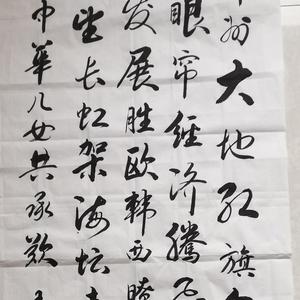 州大地红旗
眼帘经济腾飞
发展胜欧韩西瞭
望长虹架海坛
中华儿女共承欢